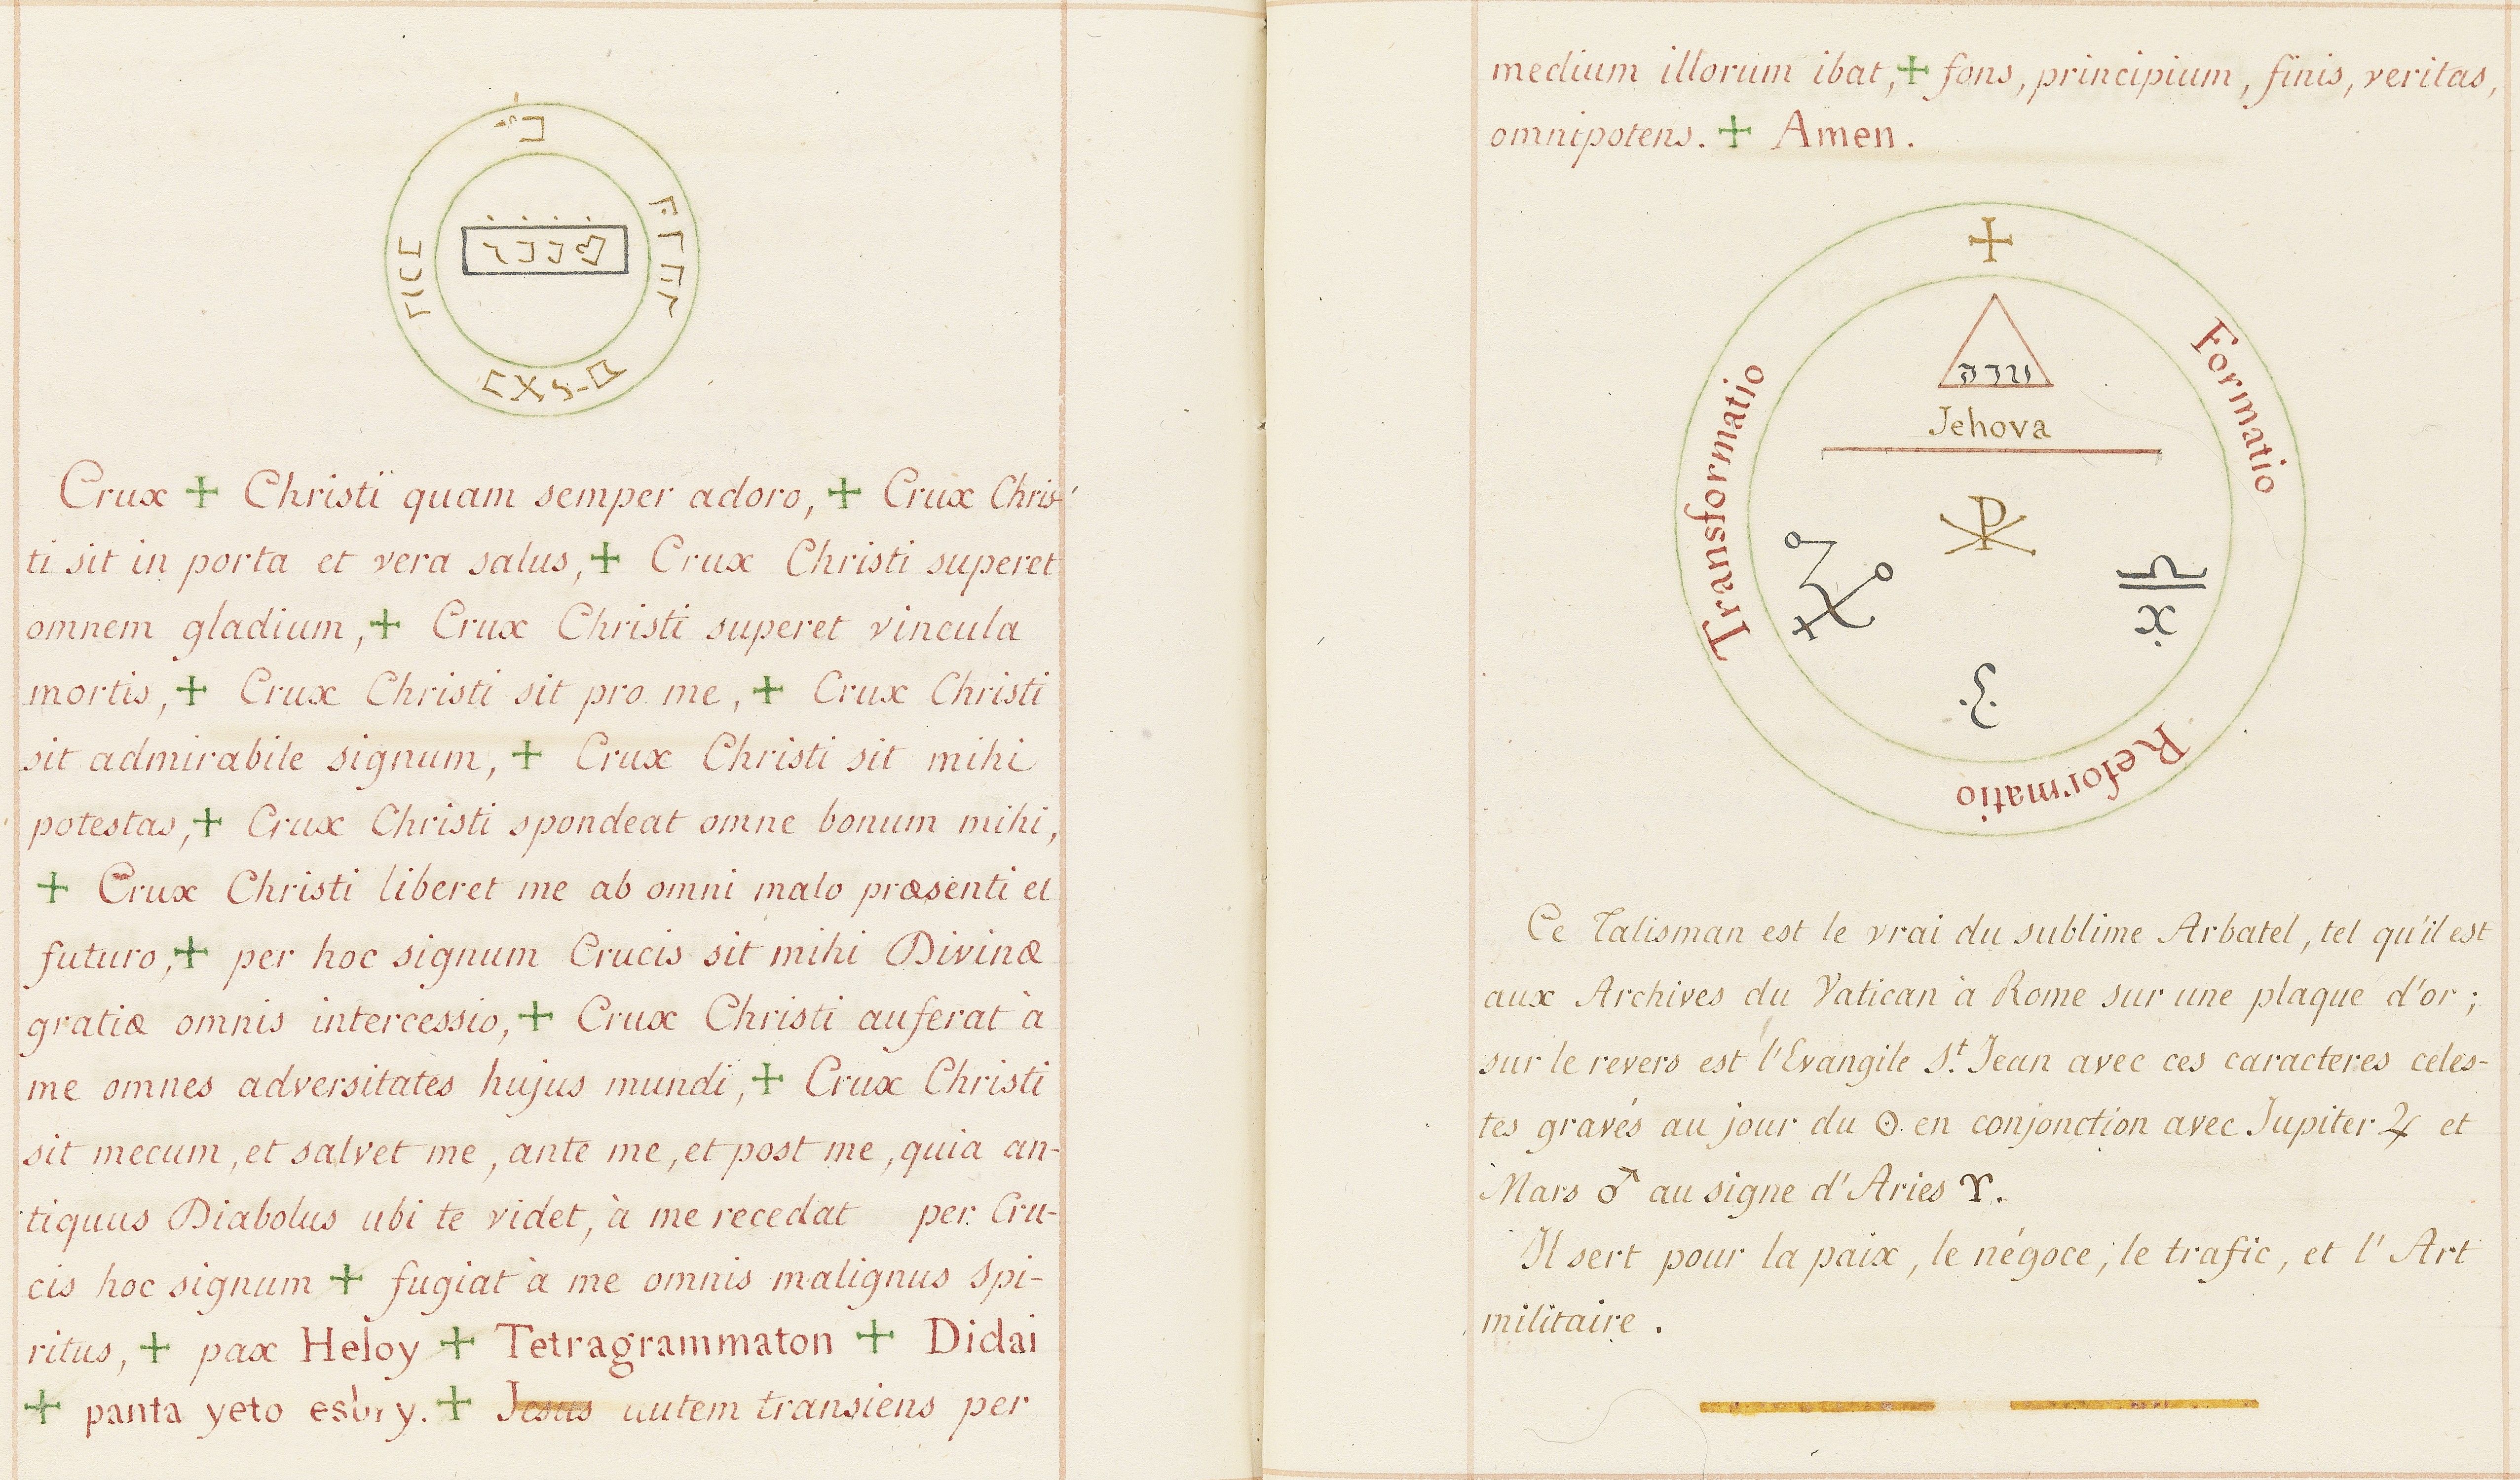 Crux ✝ Christï quam semper adoro, ✝ Crux Chris-
ti sit in porta et vera salus, ✝ Crux Christi superet
omnem gladium, ✝ Crux Christi superet vincula
mortis, ✝ Crux Christi sit pro me, ✝ Crux Christi
sit admirabile signum, ✝ Crux Christi sit mihi
potestas, ✝ Crux Christi spondeat omne bonum mihi,
✝ Crux Christi liberet me ab omni malo præsenti et
futuro, ✝ per hoc signum Crucis sit mihi Divinæ
gratiæ omnis intercessio, ✝ Crux Christi auferat à
me omnes adversitates hujus mundi, ✝ Crux Christi
sit mecum, et salvet me, ante me, et post me, quia an-
tiquus Diabolus ubi te videt, à me recedat per Cru-
cis hoc signum ✝ fugiat à me omnis malignus Spi-
ritus, ✝ pax Heloy ✝ Tetragrammaton ✝ Didai
✝ panta yeto ✝ Jesus autem transiens per
medium illorum ibat, ✝ fons, principium, finis, veritas,
omnipotens. ✝ Amen.
✝
Formatio
Reformatio
Transformatio
Jehova
Ce Talisman est le vrai du sublime Arbatel, tel qu'il est
aux Archives du Vatican à Rome sur une plaque d'or;
sur le revers est l'Evangile St. Jean avec ces caracteres celes-
tes gravés au jour du ☉ en conjonction avec Jupiter ♃ et
Mars ♂ au signe d'Aries ♈.
Il sert pour la paix, le négoce, le trafic, et l'Art
militaire.